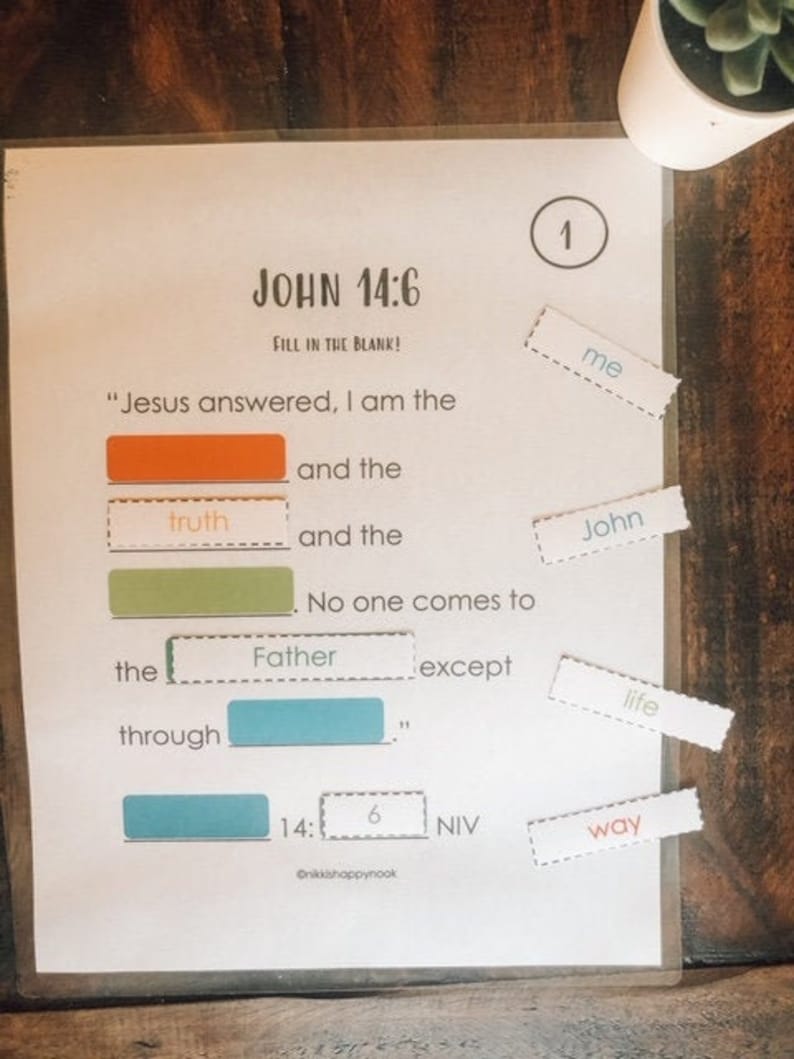 1
JOHN 14:6
FILL IN THE BLANK!
“Jesus answered, I am the
and the
truth and the
. No one comes to
the Father except
through .”
14: 6 NIV
©nikkishappynook
me
John
life
way